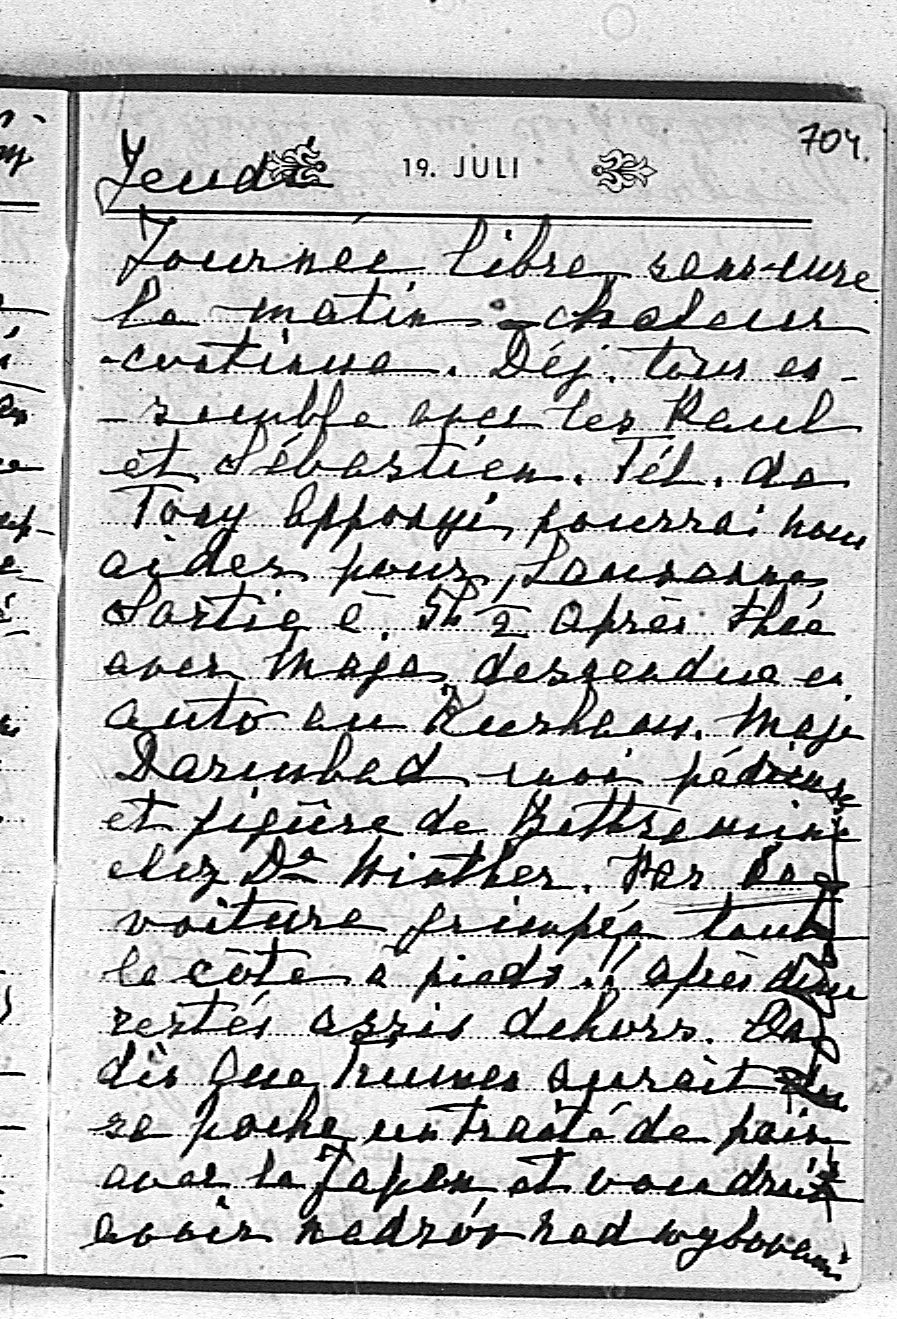 704.
Jeudi 19. JULI
Journée libre, sans cure
le matin - chaleur
continue. Déj. tous en-
-semble avec les Paul
et Sébastien. Tél. de
Tony Apponyi, pourrai nous
aider pour Lausanne
Sortie à 5h ½ après thée
avec Maja, descendue en
auto au Kurhaus. Maja
Darmbad moi pédicure
et piqûre de
chez Dr Winther. Per
voiture grimpée toute
la côte à pieds!! après
restés assis dehors. On
dis que aurait
sa poche un traité de paix
avec le Japon et voudrait
avoir nadzór nad wyborami